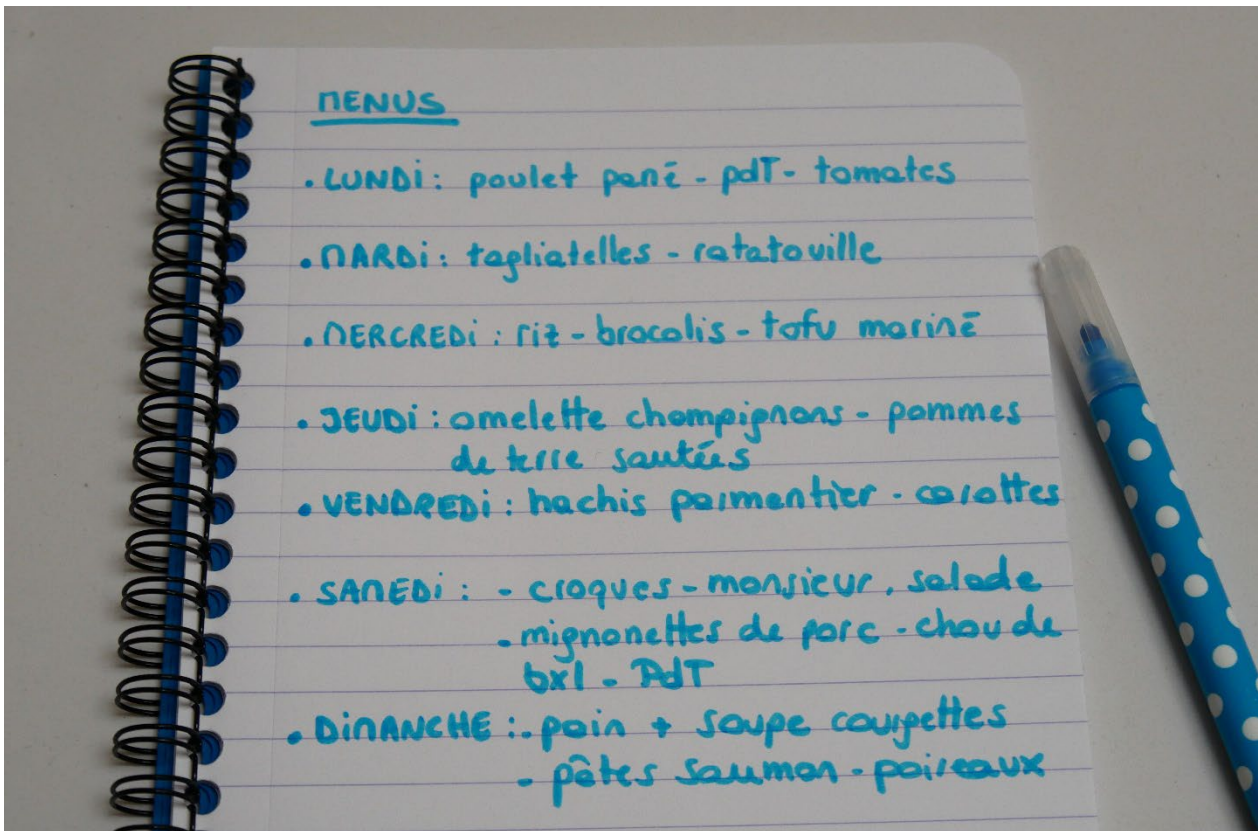 MENUS
• LUNDi : poulet pané - pdT - tomates
• MARDi : tagliatelles - ratatouille
• MERCREDi : riz - brocolis - tofu mariné
• JEUDi : omelette champignons - pommes
de terre sautées
• VENDREDi : hachis parmentier - carottes
• SAMEDi : - croques - monsieur, salade
- mignonettes de porc - chou de
bxl - PdT
• DiMANCHE : - pain + soupe courgettes
- pâtes saumon - poireaux